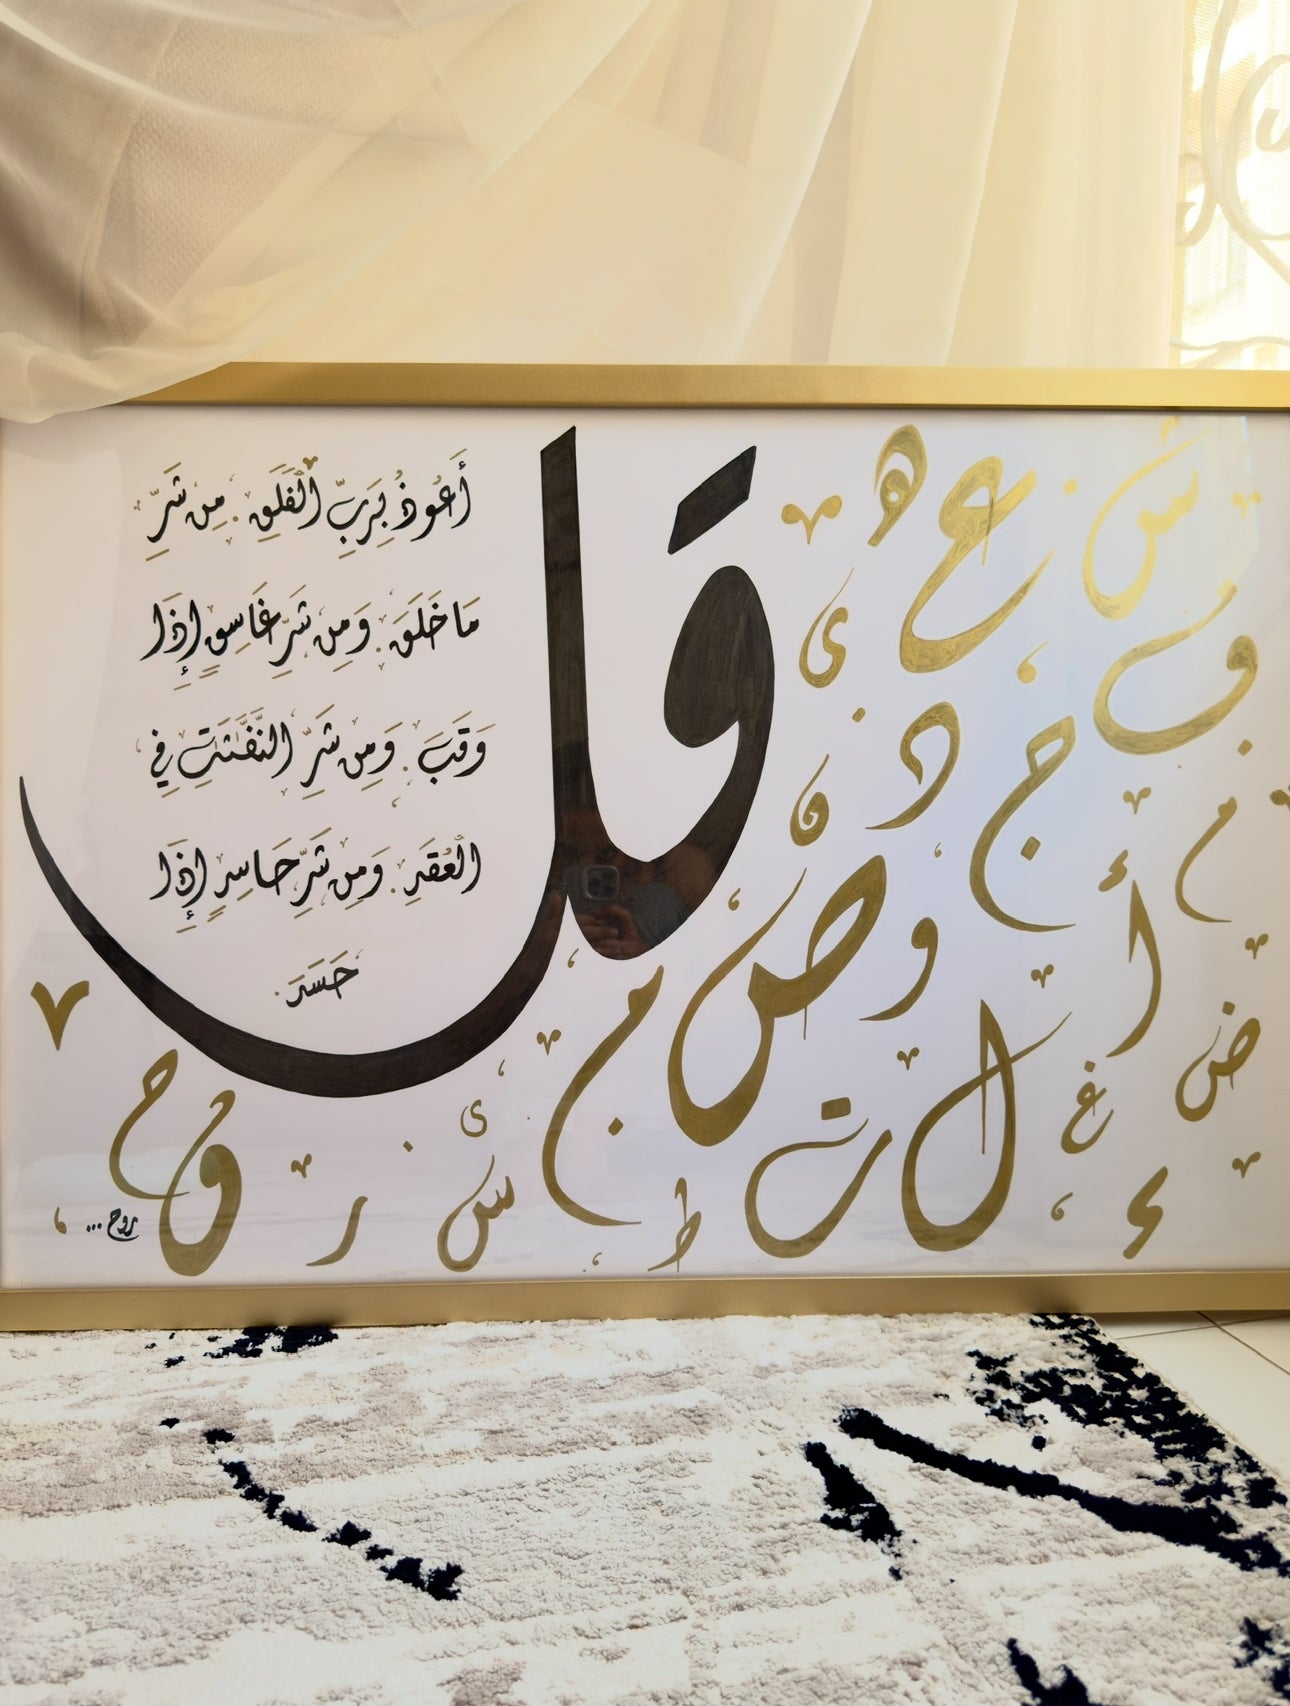 قل
أَعُوذُ بِرَبِّ الْفَلَقِ مِن شَرِّ
مَا خَلَقَ وَمِن شَرِّ غَاسِقٍ إِذَا
وَقَبَ وَمِن شَرِّ النَّفَّثَتِ فِي
الْعُقَدِ وَمِن شَرِّ حَاسِدٍ إِذَا
حَسَدَ
ش
ع
ه
ى
ف
ج
د
م
أ
و
ص
م
ل
ض
غ
ء
ت
ط
س
ى
ر
و
ح
روح...